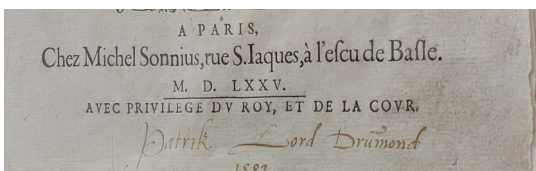 A PARIS,
Chez Michel Sonnius, rue S. Iaques, à l'escu de Basle.
M. D. LXXV.
AVEC PRIVILEGE DV ROY, ET DE LA COVR.
Patrik Lord Drumond